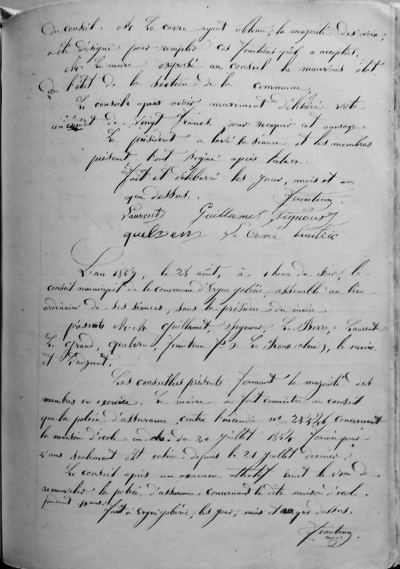 du conseil. M. Le Corre ayant obtenu la majorité des voix,
a été désigné pour remplir ces fonctions qu'il a acceptées.
M. Le maire expose au conseil le mauvais état
de l'état de la section de la commune.
Le conseil après avoir murement délibéré vote
un crédit de vingt francs pour recouvrir cet ouvrage
Le président a levé la séance et les membres
présents tout signé après lecture
fait et délibéré les jour, mois et an
que dessus. Jeuntreu
Laurent Guillamet Signour
queleren Le Corre
L'an 1859, le 28 août, à 1 heure du soir, le
conseil municipal de la commune d' assemblé au lieu
ordinaire de ses séances, sous la présidence du maire
présents M. M. Guillamet, Signour, Le Berre, Laurent
Le grand, queleren, Jeuntreu, le maire
et l'adjoint.
Les conseillers présents forment la majorité des
membres en exercice. Le maire a fait connaître au conseil
que la police d'assurance contre l'incendie n° concernant
la maison d'école en date du 20 Juillet 1854 formée pour
5 ans seulement est echue depuis le 21 Juillet dernier.
Le conseil après un examen attentif émet le vœu de
renouveler la police d'assurance concernant la dite maison d'école
pendant 10 ans.
fait à les jour, mois et an que dessus.
Jeuntreu